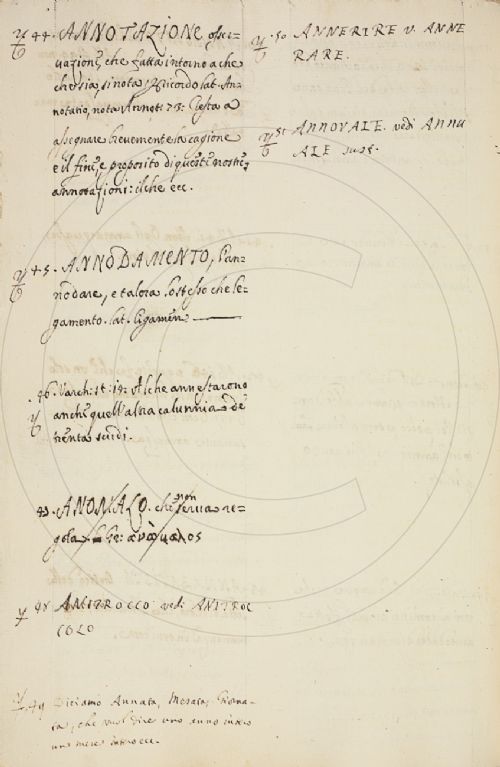 44. ANNOTAZIONE osser-
vazione, che fatta intorno a che
che sia, si nota p Ricordo. lat. An-
notatio, nota. Annot: 73: Resta a
assegnare brevemente la cagione
e il fine, e proposito di queste nostre
annotazioni: il che ecc.
45. ANNODAMENTO, l'an-
nodare, e talora lo stesso che le-
gamento. lat. ligamen
46. Varch: st: 14: Al che annestarono
anche quell'altra calunnia de
trenta scudi.
ANOMALO. che non serva re-
gola
48 ANITROCCO: vedi ANITROC
COLO
49 Diciamo Annata, Mesata, Giorna-
ta, che vuol dire uno anno intero
uno mese intero ecc.
50 ANNERIRE v. ANNE
RARE.
51 ANNOVALE. vedi ANNU
ALE